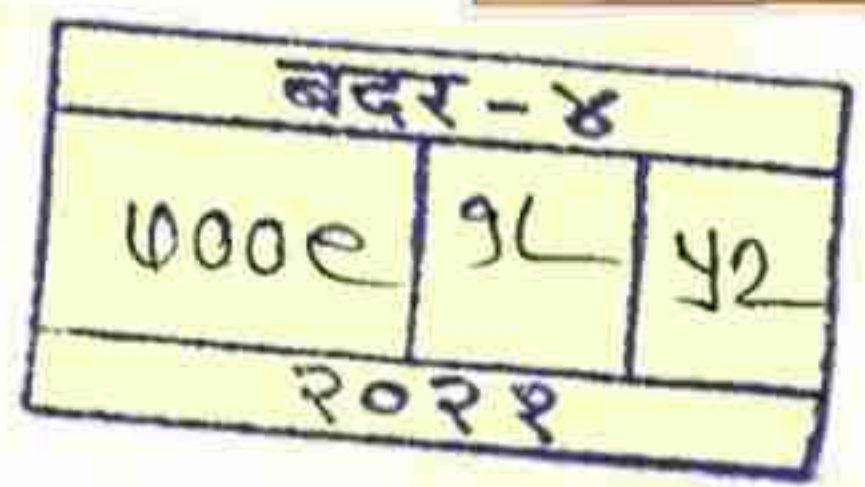 बदर - ४
७००९ १८ ५२
२०२१